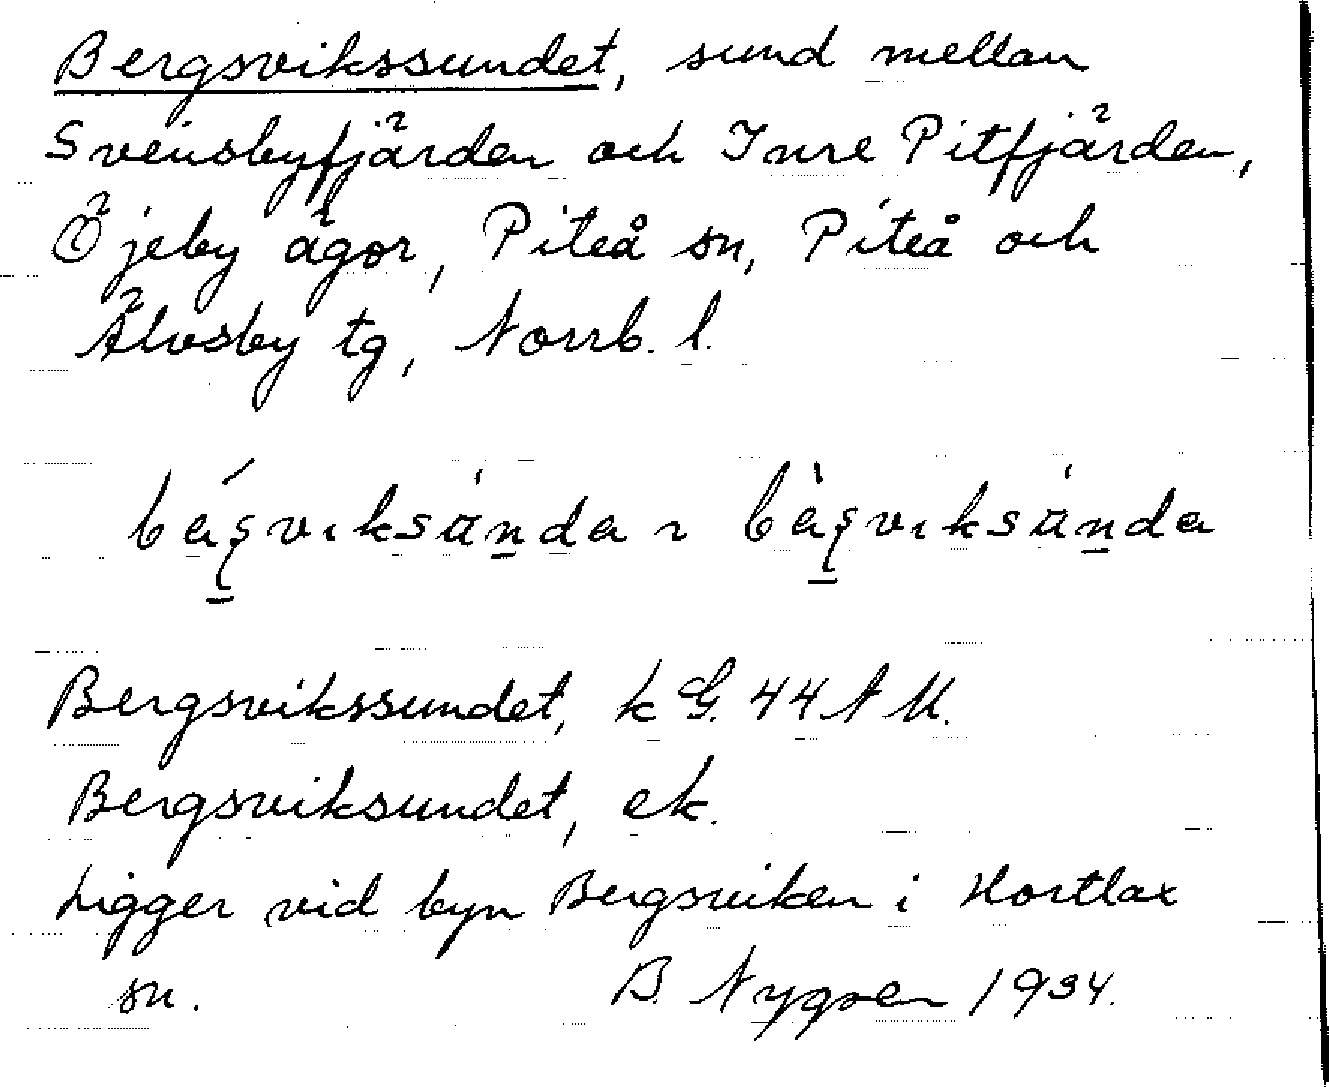 Bergsvikssundet, sund mellan
Svensbyfjärden och Inre Pitfjärden,
Öjeby ägor, Piteå sn, Piteå och
Älvsby tg, Norrb. l.
Bergsvikssundet, k G. 44 N M.
Bergsviksundet, ek.
Ligger vid byn Bergsviken i Hortlax
sn. B. Nygren 1934.